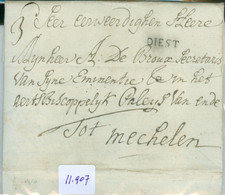 Eer eerweerdighen Heere
DIEST
Mynheer J. De Braux Secretaris
Van Syne Eminentie &c in het
aertsbisscoppelyk Paleys Van ende
Tot
Mechelen
11.907